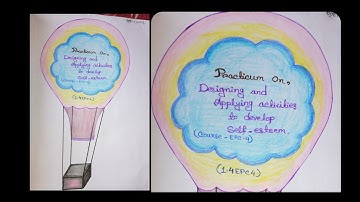 Practicum On,
Designing and
Applying activities
to develop
Self-esteem
(Course-EPC-4)
(1.4 EPC4)
Practicum On,
Designing and
Applying activities
to develop
Self-esteem
(Course-EPC-4)
(1.4EPC4)